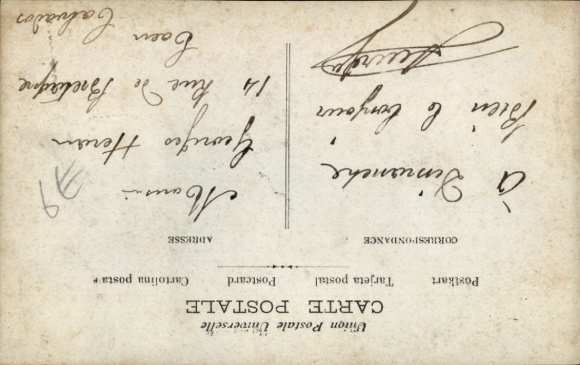 Union Postale Universelle
CARTE POSTALE
Postkart Tarjeta postal Postcard Cartolina posta
CORRESPONDANCE
ADRESSE
à Dimanche
Bien le bonjour
Georges
14 Rue de Bretagne
Caen
Calvados